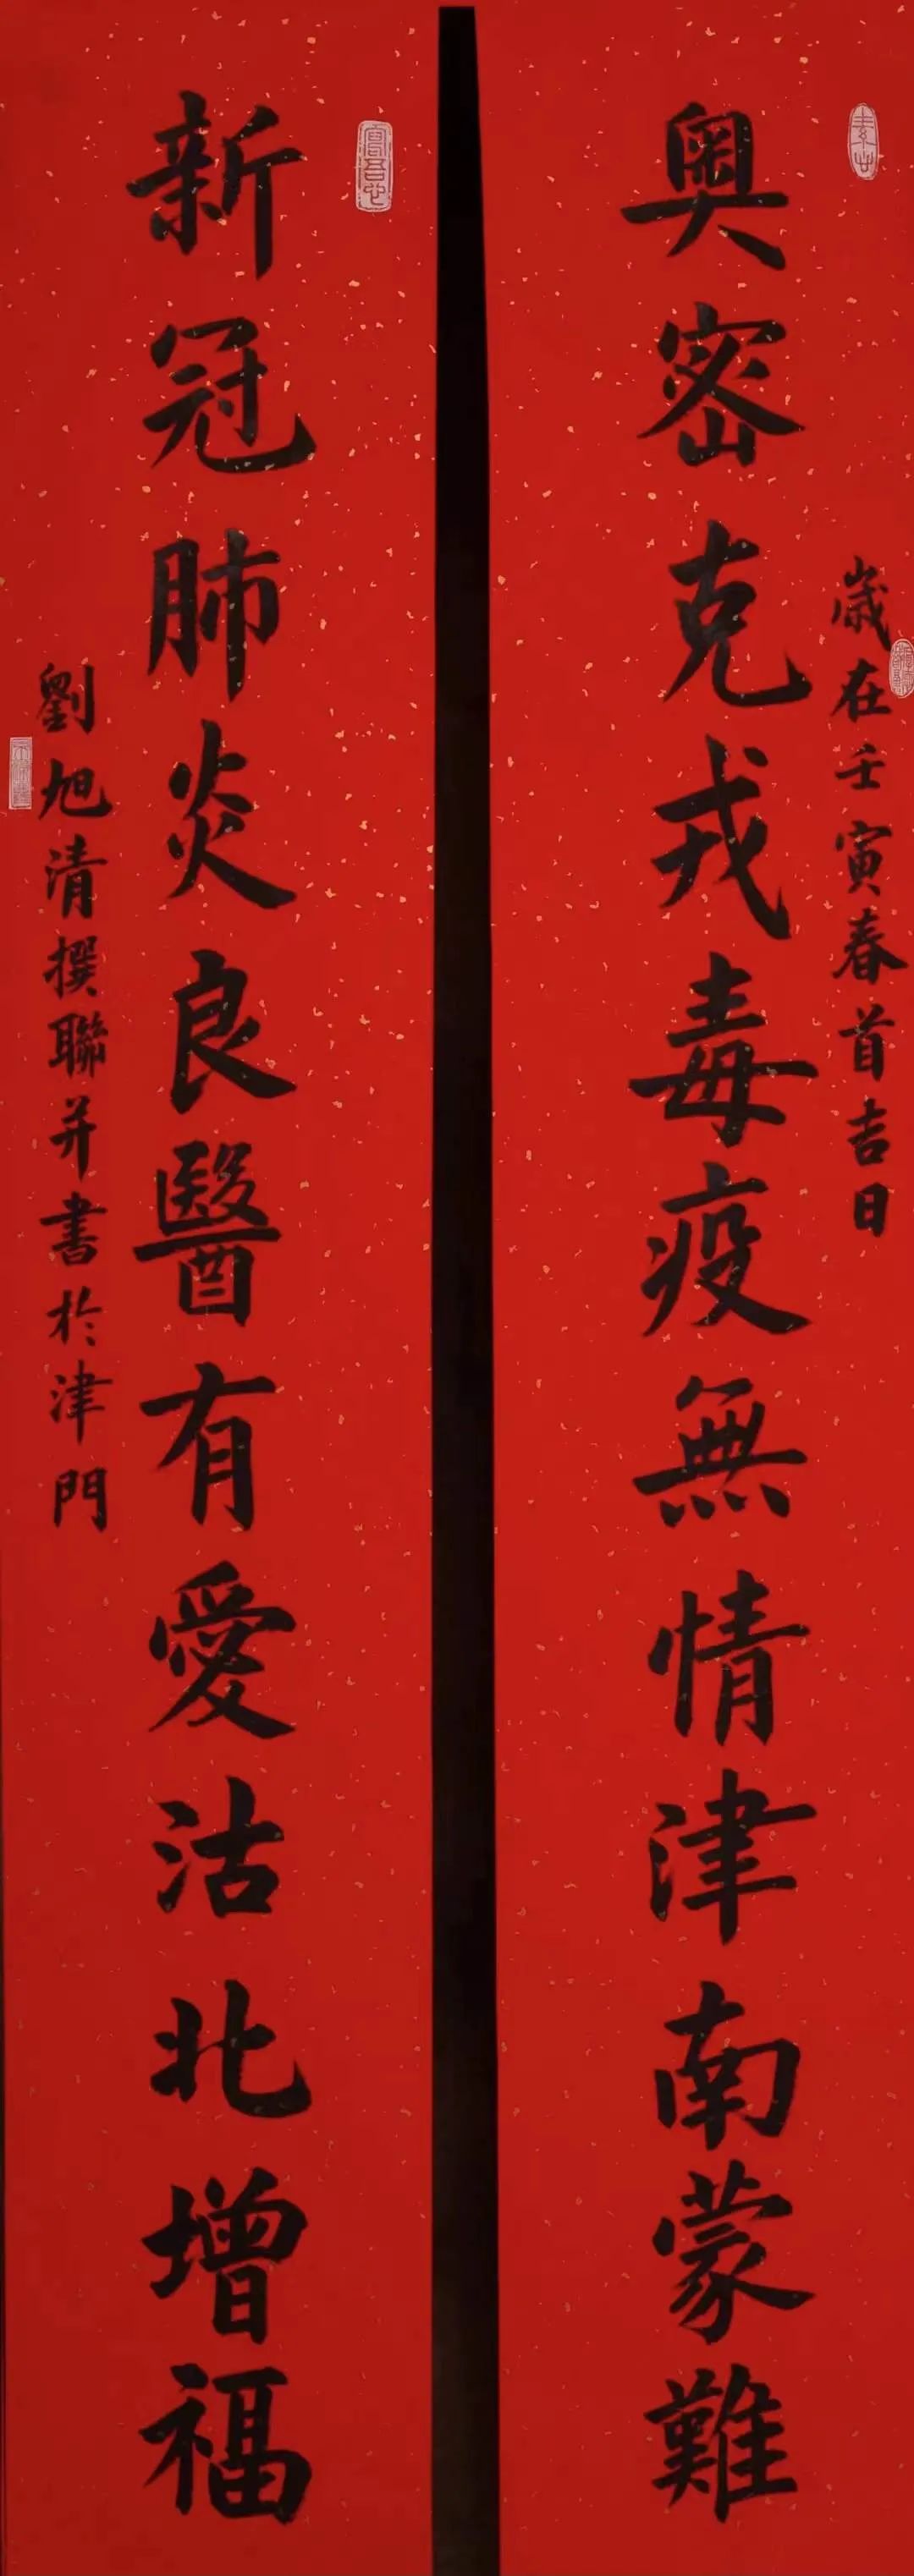 歲在壬寅春首吉日
奥密克戎毒疫無情津南蒙難
新冠肺炎良醫有愛沽北增福
劉旭清撰聯并書於津門